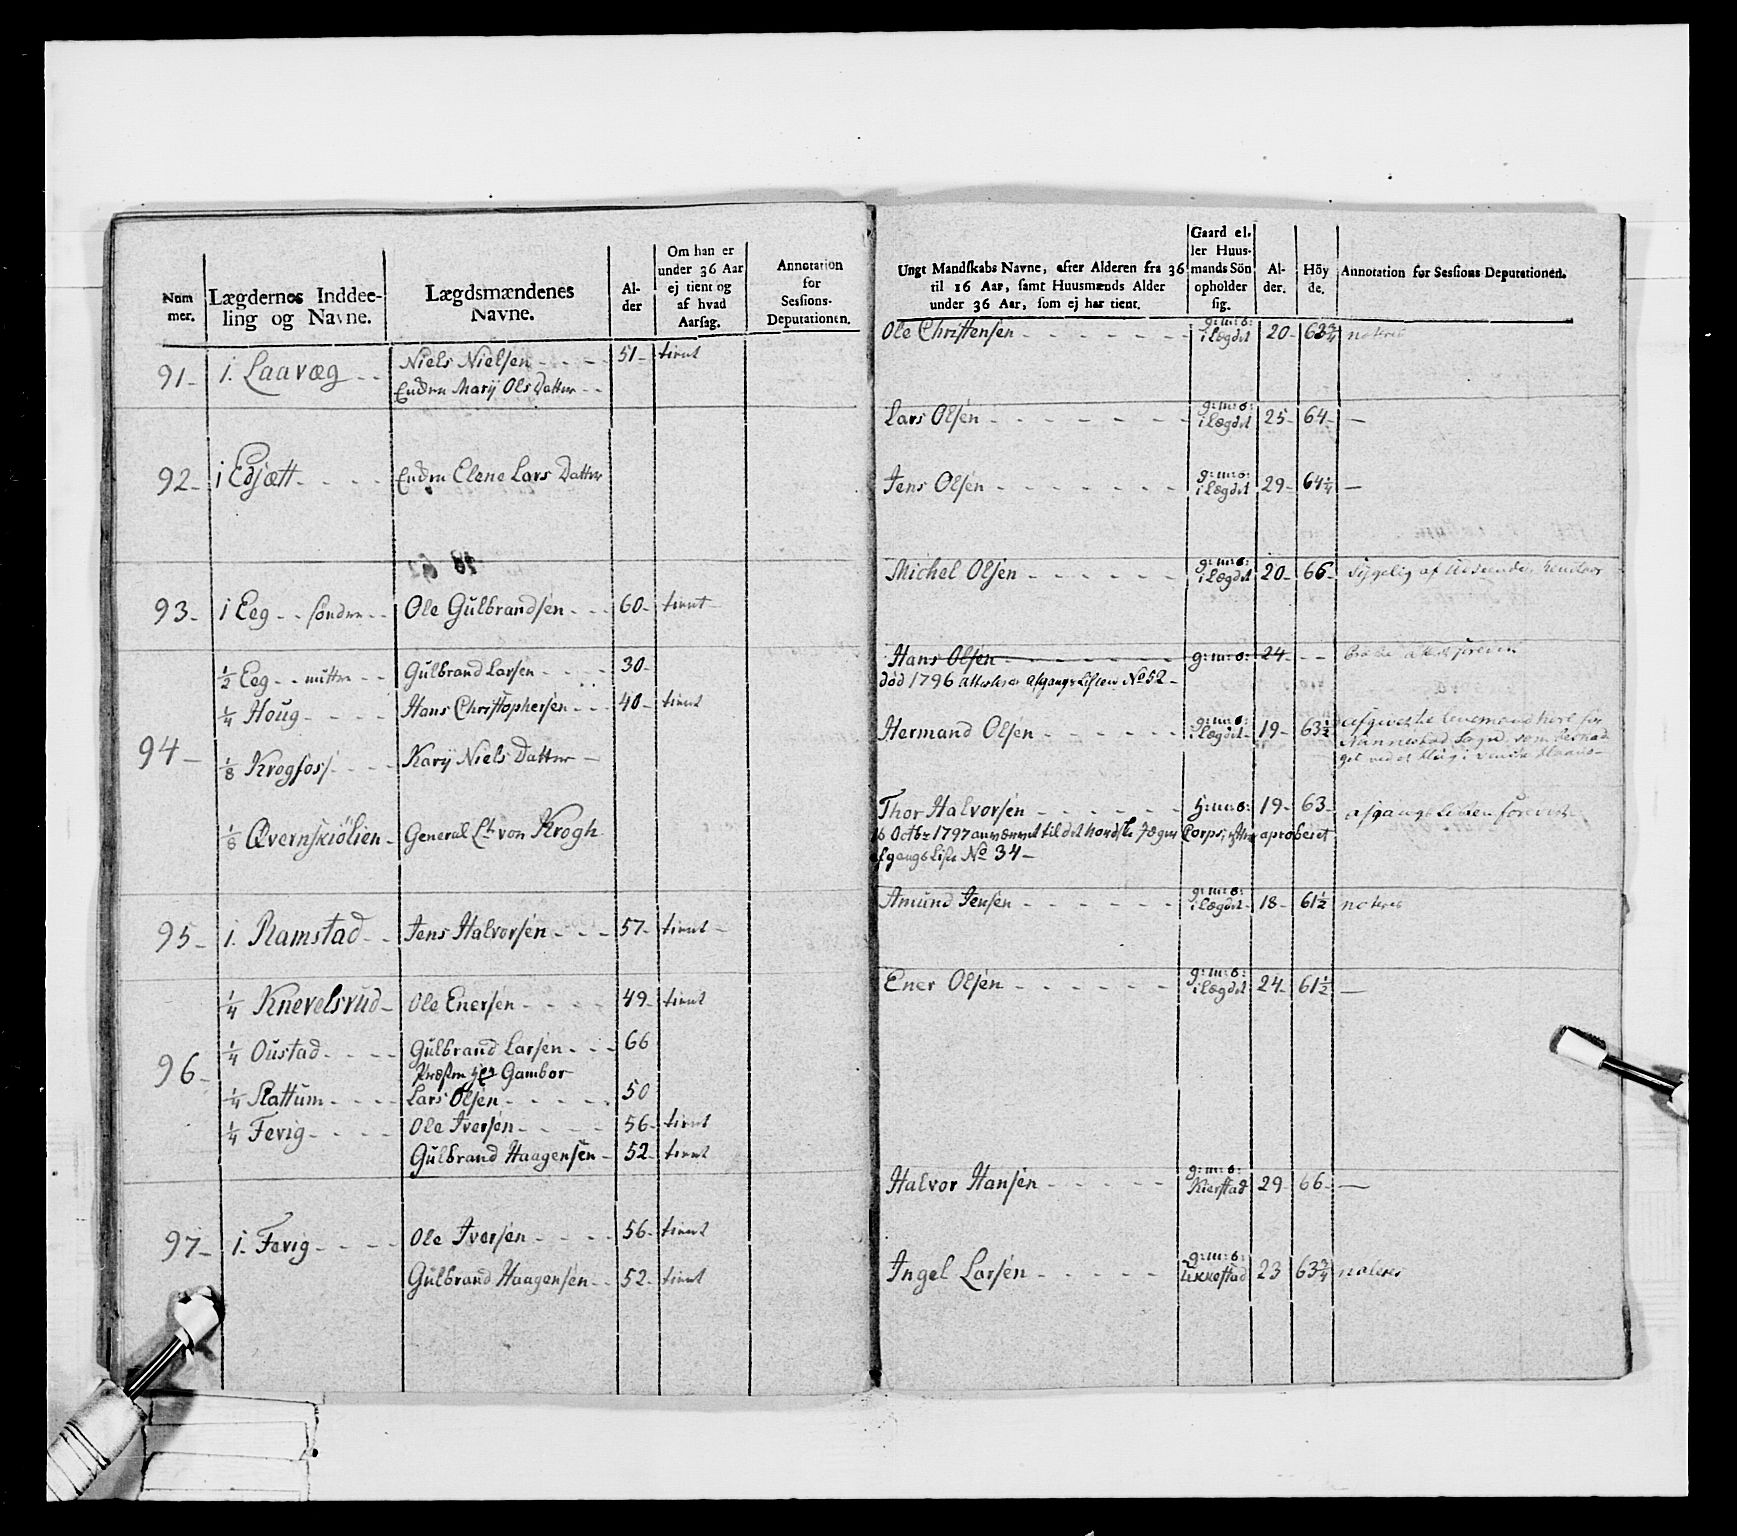 Num mer.
Lægdernes Inddeeling og Navne.
Lægdsmændenes Navne.
Alder
Om han er under 36 Aar ej tient og af hvad Aarsag.
Annotation for Sessions-Deputationen.
91- 1. Laavæg - - Niels Nielsen - - - - 51- tient
Enken Marij Ols Datter - -
92- 1 Edjætt - - - - Enken Elene Lars Datter
93- 1 Eeg - - søndre - - Ole Gulbrandsen - - - 60- tient
94-
1/2 Eeg - - mittre - - Gulbrand Larsen - - - - 30-
1/4 Houg - - - - Hans Christophersen - - - 40- tient
1/8 Krogfoss - - - - Karij Niels Datter -
1/8 Qvernskiölien - General Lt. von Krogh
95- 1. Ramstad - - Jens Halvorsen - - - 57- tient -
96-
1/4 Knevelsrud - Ole Enersen - - - - 49- tient
1/4 Oustad - - - - Gulbrand Larsen - - - 66
Præsten Hr. Gambor
1/4 Rattum - - - - Lars Olsen - - - - - 50
1/4 Fevig - - - - Ole Iversen - - - - 56- tient
Gulbrand Haagensen - 52- tient
97- 1. Fevig - - - - Ole Iversen - - - - 56- tient
Gulbrand Haagensen - - 52- tient
Ungt Mandskabs Navne, efter Alderen fra 36 til 16 Aar, samt Huusmænds Alder under 36 Aar, som ej har tient.
Gaard eller Huusmands Sön opholder sig.
Alder.
Höyde.
Annotation for Sessions Deputationen.
Ole Christensen - - - - - - g: m: s: i Lægdet 20- 63 3/4
Lars Olsen - - - - - - - g: m: s: i Lægdet 25- 64- -
Jens Olsen - - - - - - - g: m: s: i Lægdet 29- 64 1/4 -
Michel Olsen - - - - - - g: m: s: i Lægdet 20- 66- Sygelig af
Hans Olsen - - - - - - - g: m: s: 24- - -
død 1796 Afgangs Listen No 52 -
Hermand Olsen - - - - - - g: m: s: i Lægdet - 19- 63 1/2
Nannestad Sogn
Thor Halvorsen - - - - - - g: m: s: 19- 63- afgangs Listen
16 Octbr 1797 til det Nordske Jæger Corps, efter aproberet
afgangs Liste No 34 -
Amund Jensen - - - - - - g: m: s: i Lægdet - 18- 61 1/2
Ener Olsen - - - - - - g: m: s: i Lægdet 24- 61 1/2 -
Halvor Hansen - - - - - g: m: s: Kierstad 29- 66- -
Ingel Larsen - - - - - g: m: s: 23 63 3/4